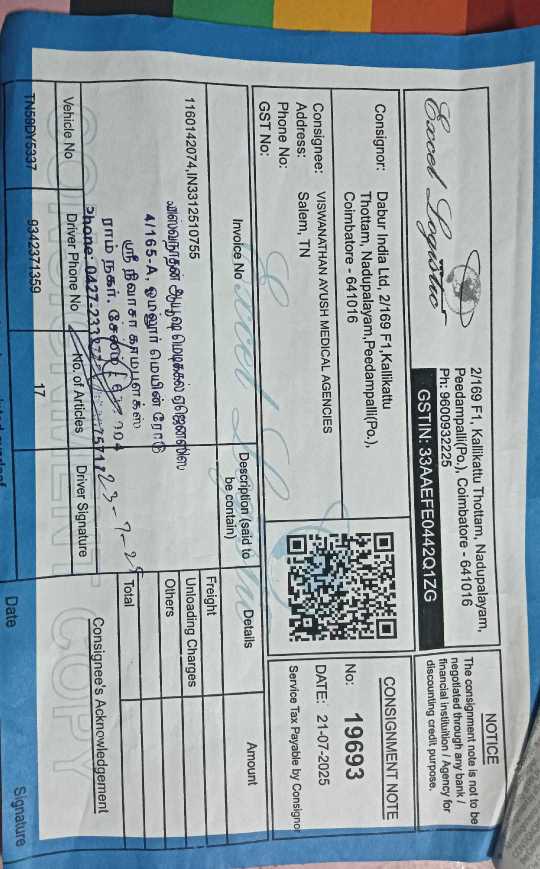 Excel Logistic
2/169 F1, Kallikattu Thottam, Nadupalayam,
Peedampalli(Po.), Coimbatore - 641016
Ph: 9600932225
GSTIN: 33AAEFE0442Q1ZG
NOTICE
The consignment note is not to be
negotiated through any bank /
financial instituition / Agency for
discounting credit purpose.
Consignor: Dabur India Ltd, 2/169 F1,Kallikattu
Thottam, Nadupalayam,Peedampalli(Po.),
Coimbatore - 641016
CONSIGNMENT NOTE
No: 19693
DATE: 21-07-2025
Service Tax Payable by Consignor
Consignee: VISWANATHAN AYUSH MEDICAL AGENCIES
Address: Salem, TN
Phone No:
GST No:
Invoice No Description (said to be contain) Details Amount
1160142074,IN3312510755
Freight
Unloading Charges
Others
Total
விஸ்வநாதன் ஆயுஷ் மெடிக்கல் ஏஜென்ஸிஸ்
4/165-A, ஓமலூர் மெயின் ரோடு
ஸ்ரீ நிவாசா காம்பளக்ஸ்
ராம் நகர், சேலம்
Phone: 0427-233
23-7-25
Vehicle No Driver Phone No No. of Articles Driver Signature Consignee's Acknowledgement
TN59DV5337 9342371359 17
CONSIGNMENT COPY
Date Signature